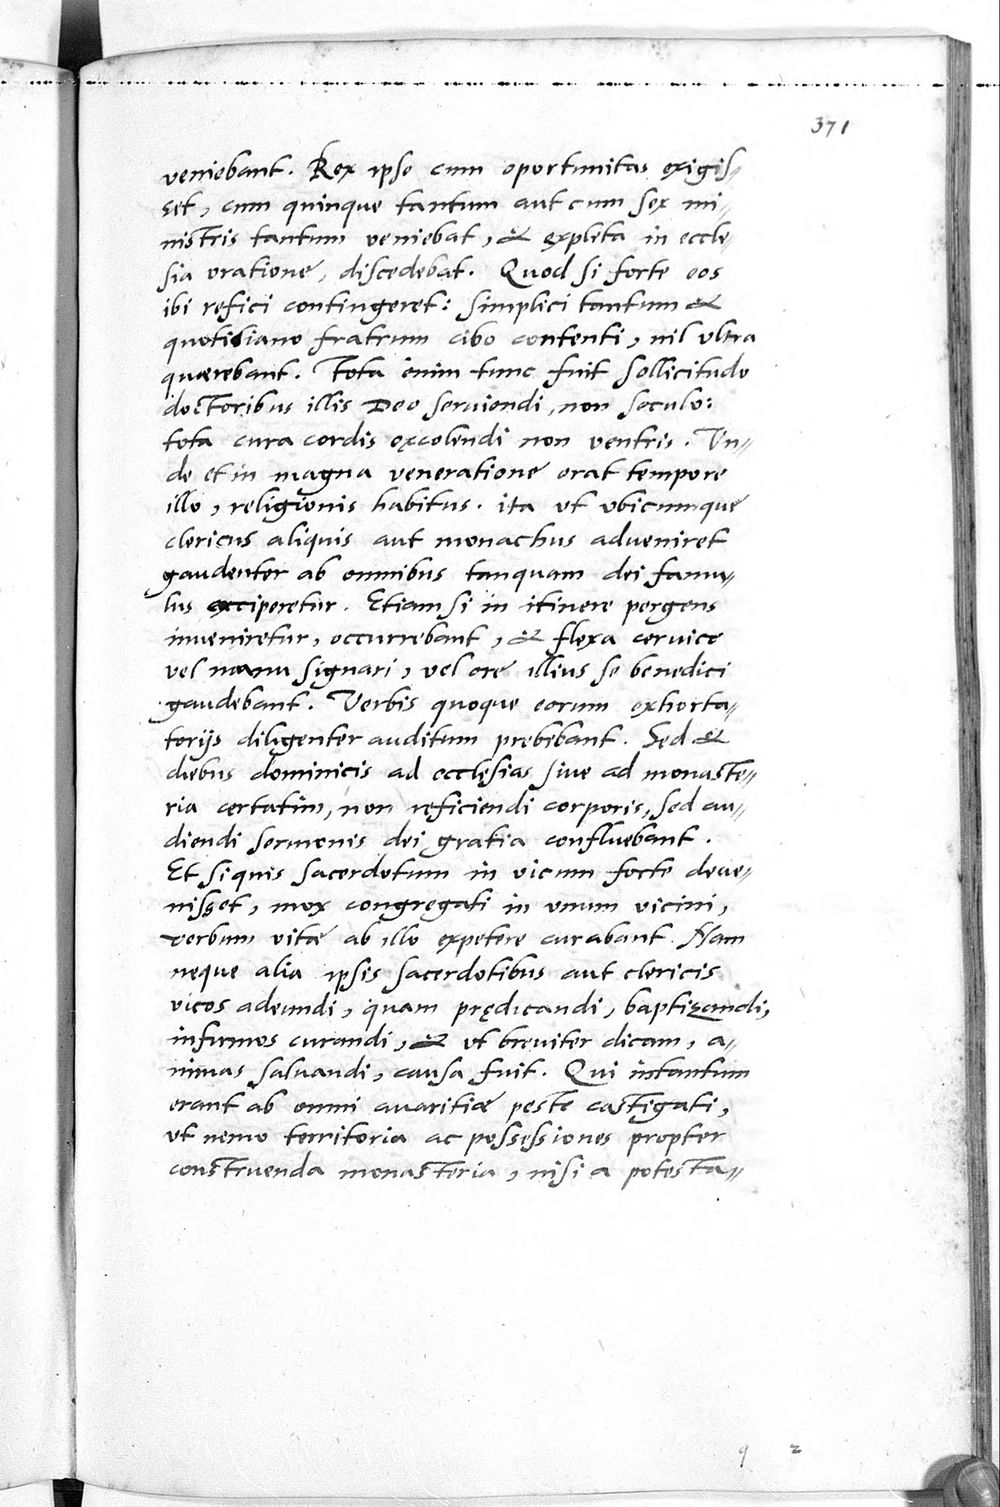 371
veniebant. Rex ipse cum oportunitas exigis„
set, cum quinque tantum aut cum sex mi„
nistris tantum veniebat, & expleta in eccle„
sia oratione, discedebat. Quod si forte eos
ibi refici contingeret: simplici tantum &
quotidiano fratrum cibo contenti, nil ultra
quærebant. Tota enim tunc fuit sollicitudo
doctoribus illis Deo serviendi, non seculo:
tota cura cordis excolendi non ventris. Un„
de et in magna veneratione erat tempore
illo, religionis habitus. ita ut ubicumque
clericus aliquis aut monachus adveniret
gaudenter ab omnibus tanquam dei famu„
lus exciperetur. Etiam si in itinere pergens
inveniretur, occurrebant, & flexa cervice
vel manu signari, vel ore illius se benedici
gaudebant. Verbis quoque eorum exhorta„
torijs diligenter auditum prebebant. Sed &
diebus dominicis ad ecclęsias sive ad monaste„
ria certatim, non reficiendi corporis, sed au„
diendi sermonis dei gratia confluebant.
Et siquis sacerdotum in vicum forte deve„
nisset, mox congregati in unum vicini,
verbum vitæ ab illo expetere curabant. Nam
neque alia ipsis sacerdotibus aut clericis
vicos adeundi, quam prędicandi, baptizandi,
infirmos curandi, & ut breviter dicam, a„
nimas salvandi, causa fuit. Qui intantum
erant ab omni avaritiæ peste castigati,
ut nemo territoria ac possessiones propter
construenda monasteria, nisi a potesta„
q 2